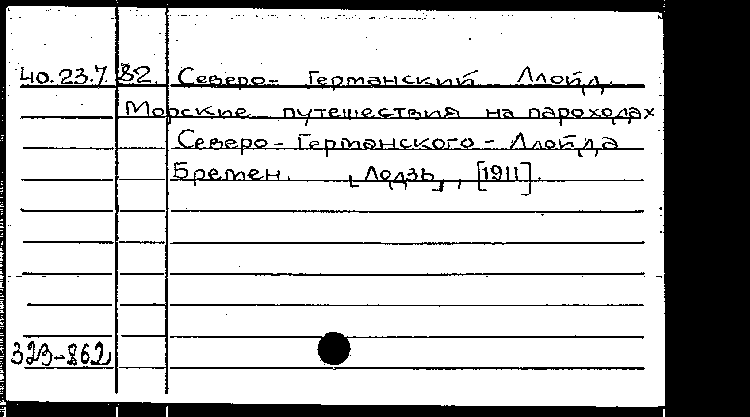 40.23.7.82. Северо- Германский Ллойд.
Морские путешествия на пароходах
Северо-Германского-Ллойда
Бремен. [Лодзь], [1911].
323-862